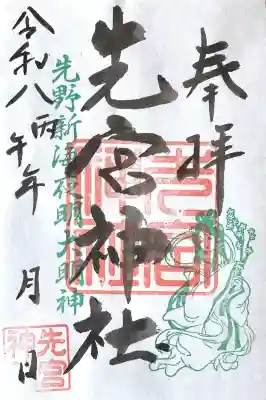 奉拝
先宮神社
先宮神社
先野新海夜明大明神
令和八丙午年 月 日
先宮